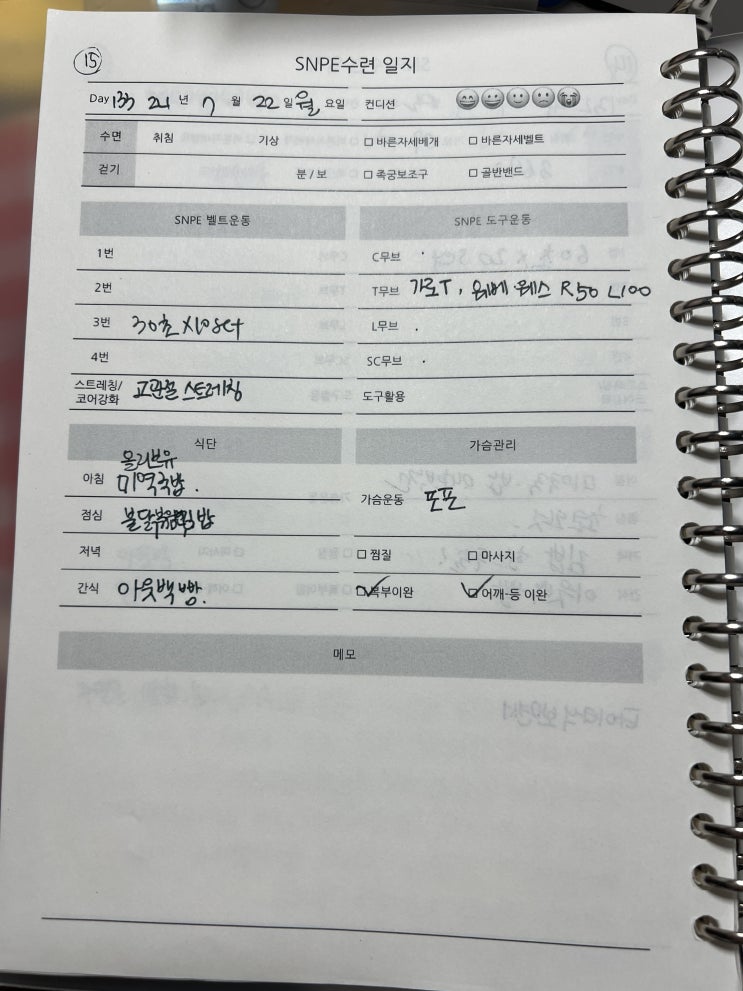 15
SNPE수련 일지
Day 133 24 년 7 월 22 일 월 요일 컨디션
수면 취침 기상 □ 바른자세베개 □ 바른자세벨트
걷기 분 / 보 □ 족궁보조구 □ 골반밴드
SNPE 벨트운동 SNPE 도구운동
1번 C무브 ·
2번 T무브 가로T, 웨베·웨스 R50 L100
3번 30초 X10set L무브 ·
4번 SC무브 ·
스트레칭/코어강화 고관절 스트레칭 도구활용
식단 가슴관리
올리브유
아침 미역국밥. 가슴운동 포포
점심 불닭볶음김밥
저녁 □ 찜질 □ 마사지
간식 아웃백빵. ☑ 복부이완 ☑ 어깨-등 이완
메모